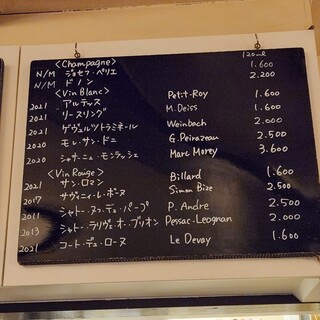 120ml
<Champagne>
N/M ジョセフ・ペリエ 1.600
N/M ドノン 2.200
<Vin Blanc>
2021 アルザス Petit-Roy 1.600
2021 リースリング M.Deiss 1.600
2021 ゲヴュルツトラミネール Weinbach 2.000
2020 モレ・サン・ドニ G.Peirazeau 2.500
2020 シャサーニュ・モンラッシェ Marc Morey 3.600
<Vin Rouge>
2021 サン・ロマン Billard 1.600
2017 サヴィニィ・レ・ボーヌ Simon Bize 2.500
2011 シャトー・ヌフ・デュ・パープ P. Andre 2.500
2013 シャトー・ラリヴェ・オー・ブリオン Pessac-Leognan 2.000
2021 コート・デュ・ローヌ Le Devay 1.600